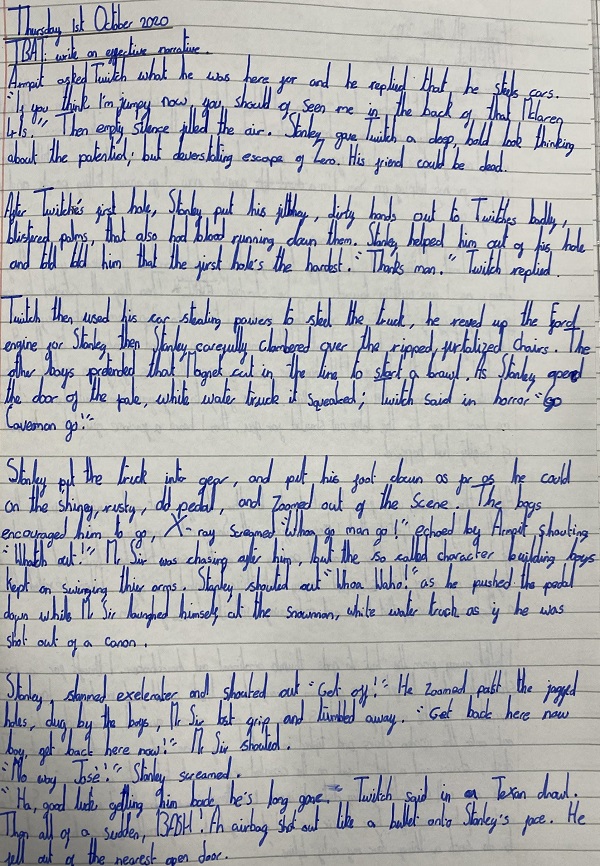 Thursday 1st October 2020
TBAT: write an effective narrative.
Armpit asked Twitch what he was here for and he replied that he stels cars.
"If you think I'm jumpy now, you should of seen me in the back of that Mclaren
41s." Then empty silence filled the air. Stanley gave Twitch a deep, bold look thinking
about the potential, but deverstating escape of Zero. His friend could be dead.
After Twitche's first hole, Stanley put his filthey, dirty hands out to Twitches badly,
blistired palms, that also had blood running down them. Stanley helped him out of his hole
and told him that the first hole's the hardest. "Thanks man." Twitch replied.
Twitch then used his car stealing powers to steel the truck, he reved up the Ford
engine for Stanley then Stanley carefully clambered over the ripped, furtalized chairs. The
other boys pretended that Magnet cut in the line to start a brawl. As Stanley opend
the door of the pale, white water truck it squeaked; Twitch said in horror "Go
Caveman go!"
Stanley put the truck into gear, and put his foot down as far as he could
on the shiney, rusty, old pedal, and zoomed out of the scene. The boys
encouraged him to go, X-ray screamed "Whoa go man go!" echoed by Armpit shouting
"Whatch out!" Mr Sir was chasing after him, but the so called character building boys
kept on swinging thier arms. Stanley shouted out "Whoa Waho!" as he pushed the pedal
down while Mr Sir launghed himself at the snowman, white water truck as if he was
shot out of a canon.
Stanley, slammed exelerater and shouted out "Get off!" He zoomed past the jagged
holes, dug by the boys, Mr Sir lost grip and tumbled away. "Get back here now
boy, get back here now!" Mr Sir shouted.
"No way José!" Stanley screamed.
"Ha, good luck getting him back, he's long gone." Twitch said in a Texan drawl.
Then all of a sudden, BASH! An airbag shot out like a bullet onto Stanley's face. He
fell out of the nearest open door.